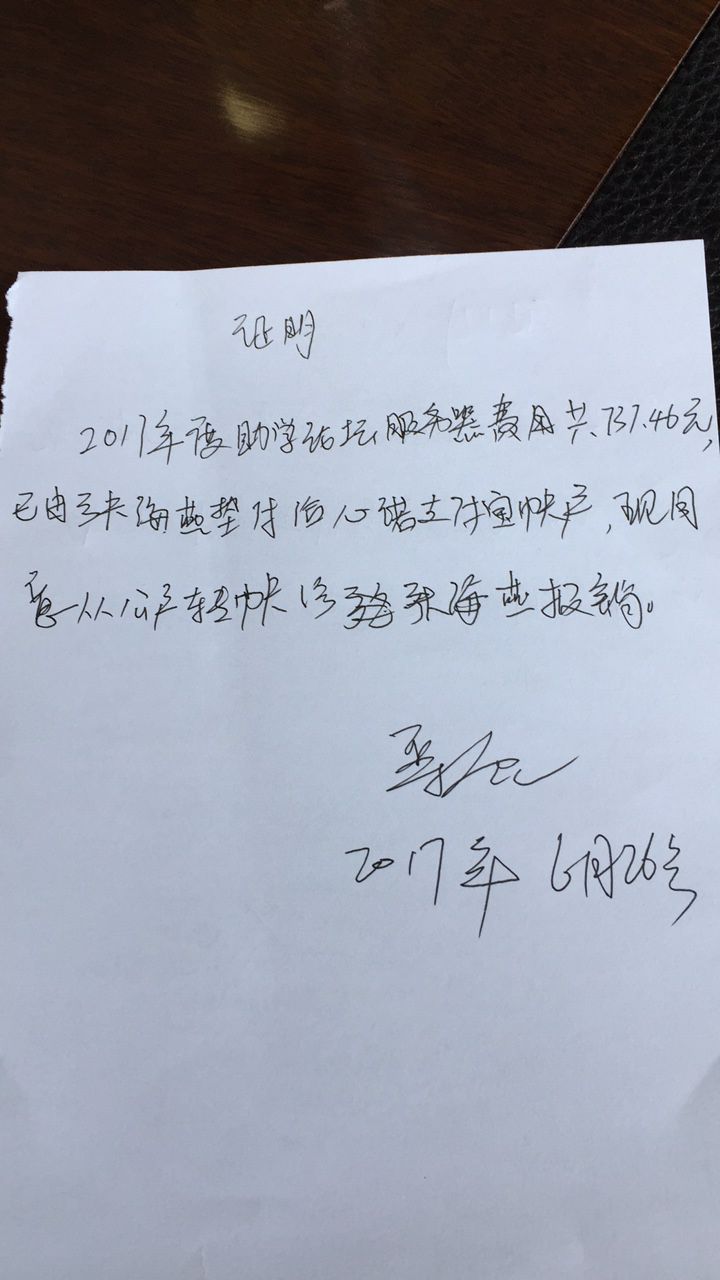 证明
2017年度助学论坛服务器费用共737.46元,
已由张海燕垫付给心诺支付宝帐户,现同
意从公户转帐给张海燕报销。
2017年6月26号